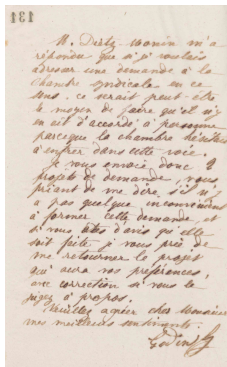 131
M. Derly-Monin m'a
répondu que si je voulais
adresser une demande à la
chambre syndicale en ce
sens, ce serait peut-être
le moyen de faire qu'il n'y
en ait d'accordé à personne
parceque la chambre hésitera
à entrer dans cette voie.
Je vous envoie donc 2
projets de demande, vous
priant de me dire s'il n'y
a pas quelque inconvénient
à former cette demande, et
si vous êtes d'avis qu'elle
soit faite, je vous prie de
me retourner le projet
qui aura vos préférences,
avec correction si vous le
jugez à propos.
Veuillez agréer cher Monsieur
mes meilleurs sentiments.
Godin